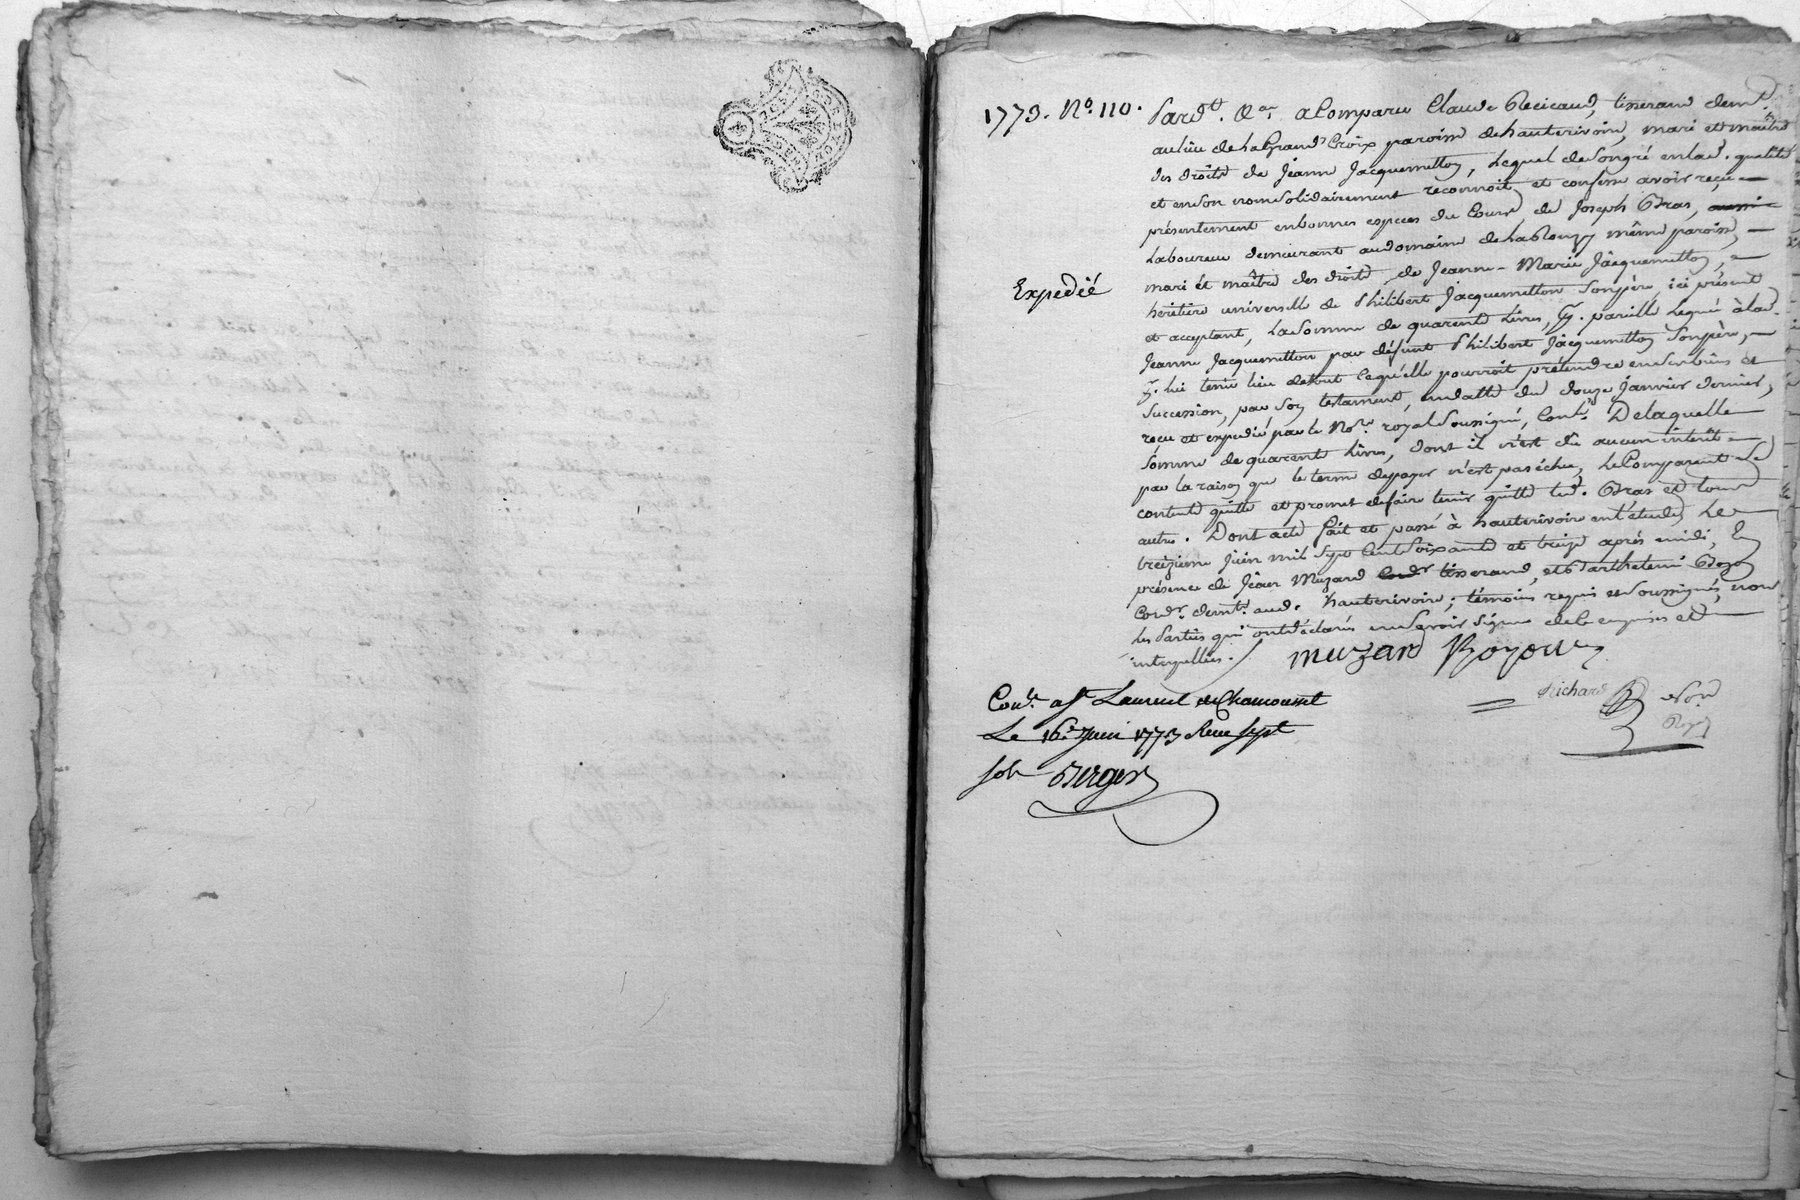 1773. N° 110.
Pard.t N.re a Comparu Claude Recicaud, tisserand demt.
au lieu de La Grand Croix paroisse de hauterivoire, mari et maitre
des droits de Jeanne Jacquemetton, Lequel de Son gré en lad. qualité
et en son nom solidairement reconnoit et confesse avoir reçu
présentement en bonnes especes du Cours, de Joseph Bras,
Laboureur demeurant au domaine de même paroisse,
mari et maître des droits de Jeanne-Marie Jacquemetton,
héritière universelle de Philibert Jacquemetton Son père, ici présent
Expedié
et acceptant, La Somme de quarente Livres, pareille Legué à lad.
Jeanne Jacquemetton par défunt Philibert Jacquemetton Son père,
lui tenir lieu de tout ce qu'elle pourroit prétendre en ses biens et
Succession, par Son testament, en datte du douze janvier dernier,
reçu et expedié par le No.re royal Soussigné, Cont.lé De laquelle
Somme de quarente Livres, dont il n'est du aucun intérêt
par la raison que le terme de payer n'est pas échu, Le Comparant Se
contente quitte et promet de faire tenir quitte led. Bras et tous
autres. Dont acte fait et passé à hauterivoire en l'étude, Le
treizieme juin mil Sept Cent Soixante et treize après midi, En
présence de Jean Muzard tisserand, et Barthelemi
Cord.r demt. aud. hauterivoire, témoins requis et soussignés, non
les Parties qui ont déclarés ne Savoir Signer de ce enquises et
interpellées.
muzard Royon
Richard No.re Roy.
Con.lé a St Laurent de Chamousset
Le 16.e Juin 1773 Reçu sept
sols Berger